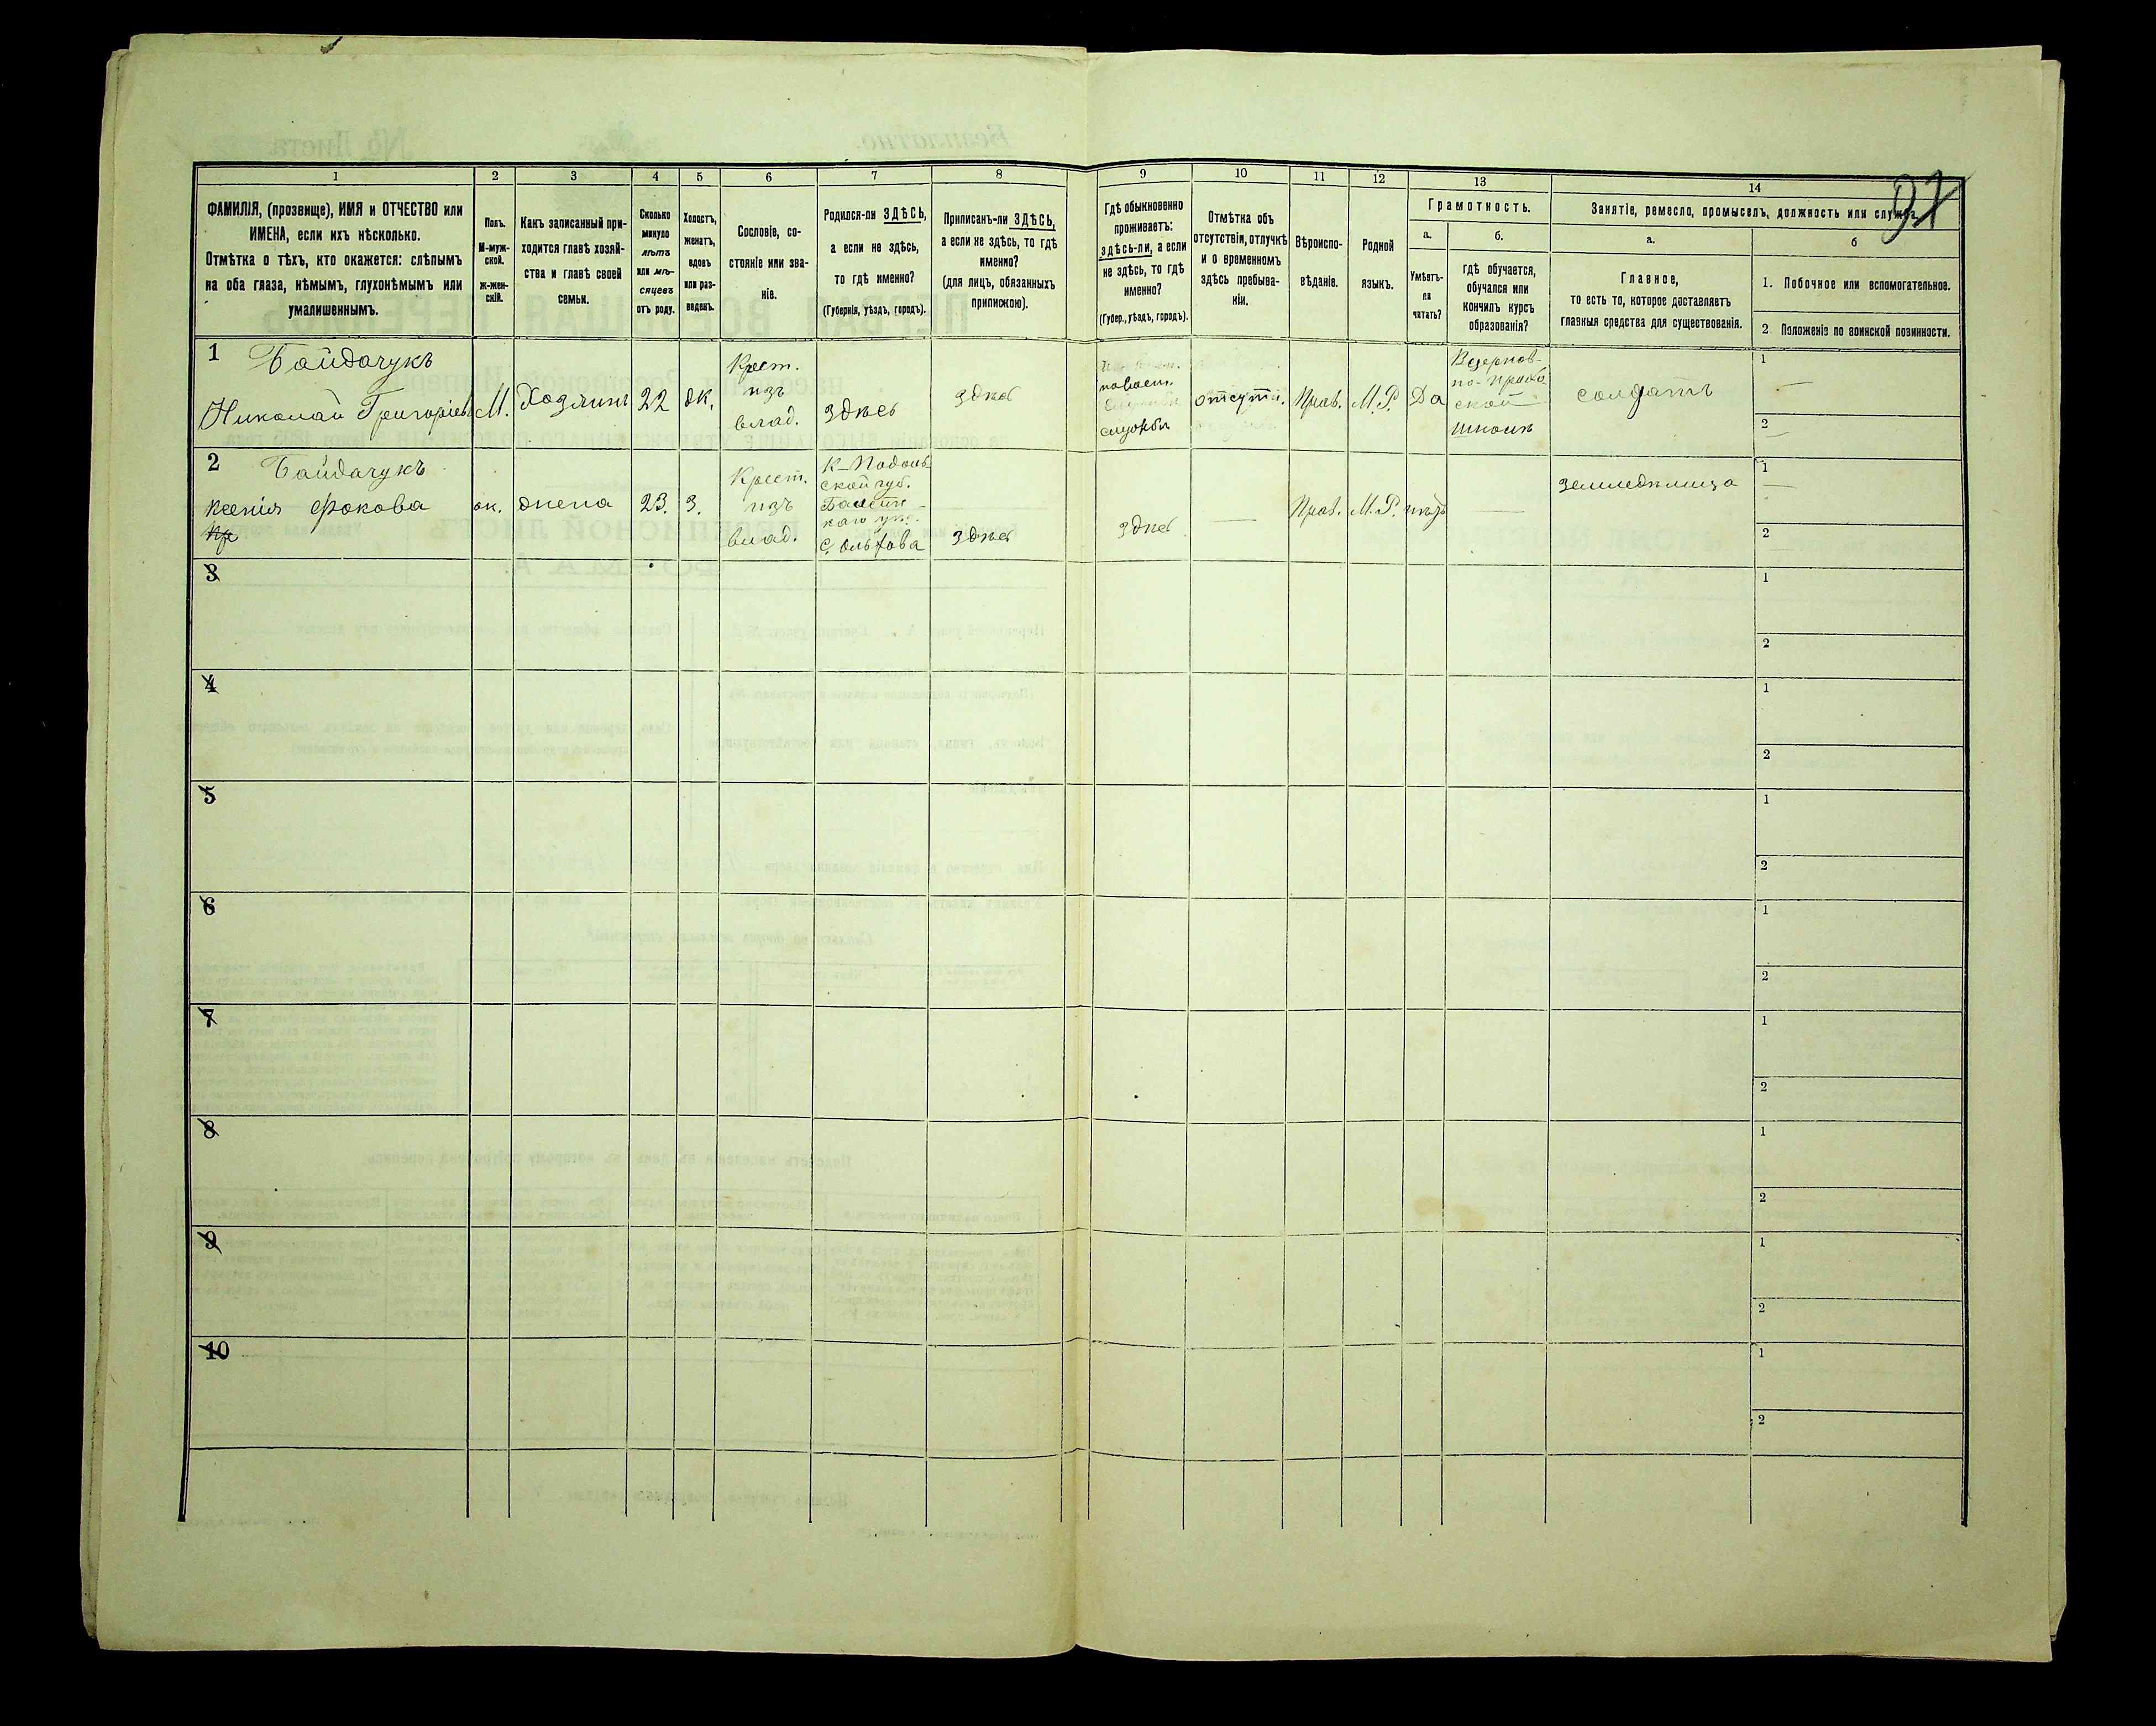 97
1
2
3
4
5
6
7
8
9
10
11
12
13
14
ФАМИЛІЯ, (прозвище), ИМЯ и ОТЧЕСТВО или
ИМЕНА, если ихъ нѣсколько.
Отмѣтка о тѣхъ, кто окажется: слѣпымъ
на оба глаза, нѣмымъ, глухонѣмымъ или
умалишеннымъ.
Полъ.
М-муж-
ской.
ж-жен-
скій.
Какъ записанный при-
ходится главѣ хозяй-
ства и главѣ своей
семьи.
Сколько
минуло
лѣтъ
или мѣ-
сяцевъ
отъ роду.
Холостъ,
женатъ,
вдовъ
или раз-
веденъ.
Сословіе, со-
стояніе или зва-
ніе.
Родился-ли ЗДѢСЬ,
а если не здѣсь,
то гдѣ именно?
(Губернія, уѣздъ, городъ).
Приписанъ-ли ЗДѢСЬ,
а если не здѣсь, то гдѣ
именно?
(для лицъ, обязанныхъ
припискою).
Гдѣ обыкновенно
проживаетъ:
здѣсь-ли, а если
не здѣсь, то гдѣ
именно?
(Губер., уѣздъ, городъ).
Отмѣтка объ
отсутствіи, отлучкѣ
и о временномъ
здѣсь пребыва-
ніи.
Вѣроиспо-
вѣданіе.
Родной
языкъ.
Грамотность.
а.
Умѣетъ-
ли
читать?
б.
гдѣ обучается,
обучался или
кончилъ курсъ
образованія?
Занятіе, ремесло, промыселъ, должность или служба.
а.
Главное,
то есть то, которое доставляетъ
главныя средства для существованія.
б
1. Побочное или вспомогательное.
2 Положеніе по воинской повинности.
1
Байдачукъ
Николай Григоріев
М.
Хозяинъ
22
ж.
Крест.
изъ
влад.
здѣсь
здѣсь
службы
отсутст.
Прав.
М.Р.
Да
ской
школѣ
солдатъ
1
2
2
Байдачукъ
Ксенія Фокова
ж.
жена
23.
З.
Крест.
изъ
влад.
К-Подоль-
ской губ.
Балтск-
здѣсь
здѣсь
Прав.
М.Р.
нѣтъ
земледѣлица
1
2
3
1
2
4
1
2
5
1
2
6
1
2
7
1
2
8
1
2
9
1
2
10
1
2